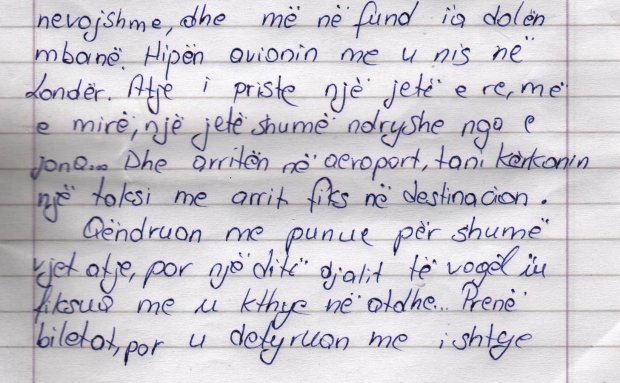 nevojshme, dhe më në fund ia dolën
mbanë. Hipën avionin me u nis në
Londër. Atje i priste një jetë e re, më
e mirë, një jetë shumë ndryshe nga e
jona... Dhe arritën në aeroport, tani kërkonin
një taksi me arrit fiks në destinacion.
Qëndruan me punue për shumë
vjet atje, por një ditë djalit të vogël iu
fiksua me u kthye në atdhe... Prenë
biletat, por u detyruan me i shtye